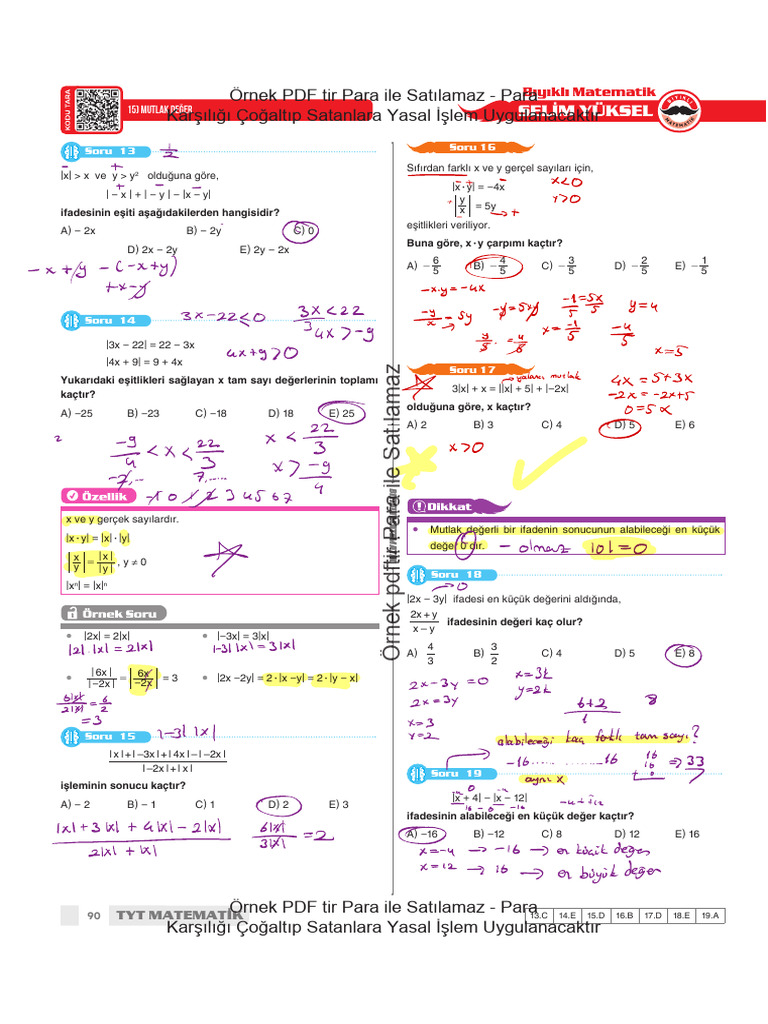 Örnek PDF tir Para ile Satılamaz - Para
Karşılığı Çoğaltıp Satanlara Yasal İşlem Uygulanacaktır
KODU TARA
15) MUTLAK DEĞER
Bıyıklı Matematik
SELİM YÜKSEL
BIYIKLI MATEMATİK
Soru 13
1/2
|x| > x ve y > y² olduğuna göre,
| – x | + | – y | – |x – y|
ifadesinin eşiti aşağıdakilerden hangisidir?
A) – 2x B) – 2y C) 0
D) 2x – 2y E) 2y – 2x
– x + y – (– x + y)
+ x – y
Soru 14
3x – 22 ≤ 0
3x < 22
4x > –9
|3x – 22| = 22 – 3x
|4x + 9| = 9 + 4x
4x + 9 > 0
Yukarıdaki eşitlikleri sağlayan x tam sayı değerlerinin toplamı
kaçtır?
A) –25 B) –23 C) –18 D) 18 E) 25
–9/4 < x < 22/3
x < 22/3
x > –9/4
Özellik
x ve y gerçek sayılardır.
|x · y| = |x| · |y|
|x/y| = |x|/|y| , y ≠ 0
|xⁿ| = |x|ⁿ
Örnek Soru
• |2x| = 2|x| • |–3x| = 3|x|
|2| · |x| = 2|x| |–3| |x| = 3|x|
• |6x|/|–2x| = |6x/–2x| = 3 • |2x –2y| = 2 · |x –y| = 2 · |y – x|
6|x|/2|x| = 6/2
= 3
Soru 15
|–3| |x|
|x|+|–3x|+|4x|–|–2x|
|–2x|+|x|
işleminin sonucu kaçtır?
A) – 2 B) – 1 C) 1 D) 2 E) 3
|x| + 3|x| + 4|x| – 2|x|
2|x| + |x|
6|x|/3|x| = 2
Soru 16
Sıfırdan farklı x ve y gerçel sayıları için,
|x · y| = –4x
x < 0
|y/x| = 5y
y > 0
eşitlikleri veriliyor.
Buna göre, x · y çarpımı kaçtır?
A) –6/5 B) –4/5 C) –3/5 D) –2/5 E) –1/5
–x.y = –4x
–y/x = 5y
–y = 5xy
–1/5 = 5x/5
y = 4
x = –1/5
–4/5
x = 5
Soru 17
yalancı mutlak
3|x| + x = ||x| + 5| + |–2x|
4x = 5 + 3x
–2x = –2x + 5
olduğuna göre, x kaçtır?
A) 2 B) 3 C) 4 D) 5 E) 6
x > 0
Örnek pdf tir Para ile Satılamaz
Dikkat
• Mutlak değerli bir ifadenin sonucunun alabileceği en küçük
değer 0 dır.
– olmaz |0| = 0
Soru 18
|2x – 3y| ifadesi en küçük değerini aldığında,
→ 0
2x + y
x – y
ifadesinin değeri kaç olur?
A) 4/3 B) 3/2 C) 4 D) 5 E) 8
2x – 3y = 0
2x = 3y
x = 3
y = 2
x = 3k
y = 2k
6 + 2
1
8
alabileceği kaç farklı tam sayı?
–16 ............ 16
16
16
+ 0
⇒ 33
Soru 19
aynı x
|x + 4| – |x – 12|
ifadesinin alabileceği en küçük değer kaçtır?
A) –16 B) –12 C) 8 D) 12 E) 16
x = –4 → –16 → en küçük değer
x = 12 → 16 → en büyük değer
90 TYT MATEMATİK
13.C 14.E 15.D 16.B 17.D 18.E 19.A
Örnek PDF tir Para ile Satılamaz - Para
Karşılığı Çoğaltıp Satanlara Yasal İşlem Uygulanacaktır